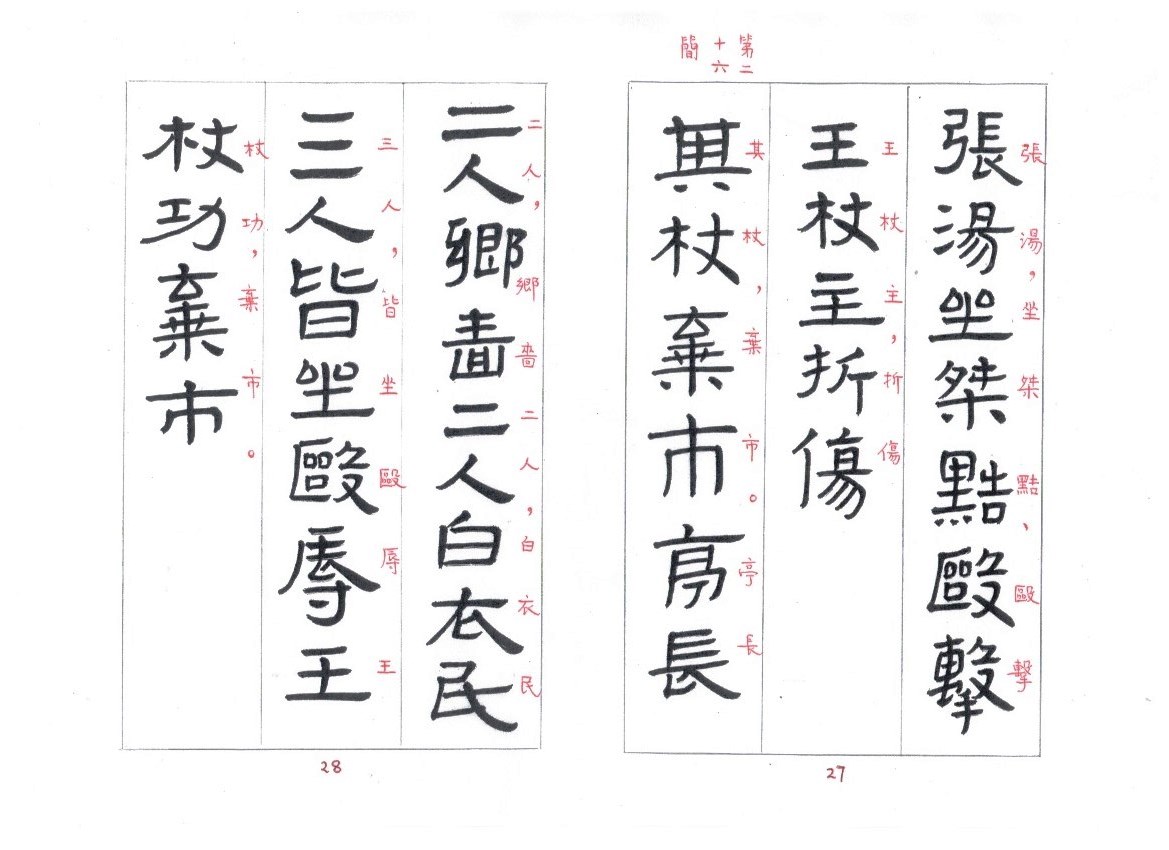 張湯坐桀黠毆擊
張湯，坐桀黠、毆擊
王杖主折傷
王杖主，折傷
第二
十六
簡
其杖棄市亭長
其杖，棄市。亭長
27
二人鄉嗇二人白衣民
二人，鄉嗇二人，白衣民
三人皆坐毆辱王
三人，皆坐毆辱王
杖功棄市
杖功，棄市。
28